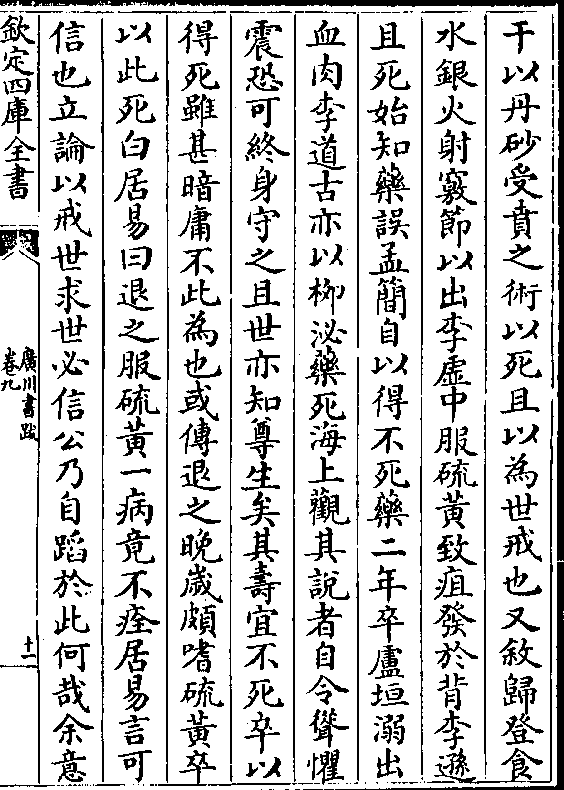 干以丹砂受賁之術以死且以為世戒也又敘歸登食
水銀火射竅節以出李虛中服硫黃致疽發於背李遜
且死始知藥誤孟簡自以得不死藥二年卒盧垣溺出
血肉李道古亦以柳泌藥死海上觀其說者自令聳懼
震恐可終身守之且世亦知尊生矣其壽宜不死卒以
得死雖甚暗庸不此為也或傳退之晚歲頗嗜硫黃卒
以此死白居易曰退之服硫黃一病竟不痊居易言可
信也立論以戒世求世必信公乃自蹈於此何哉余意
欽定四庫全書
廣川書跋
卷九
十二